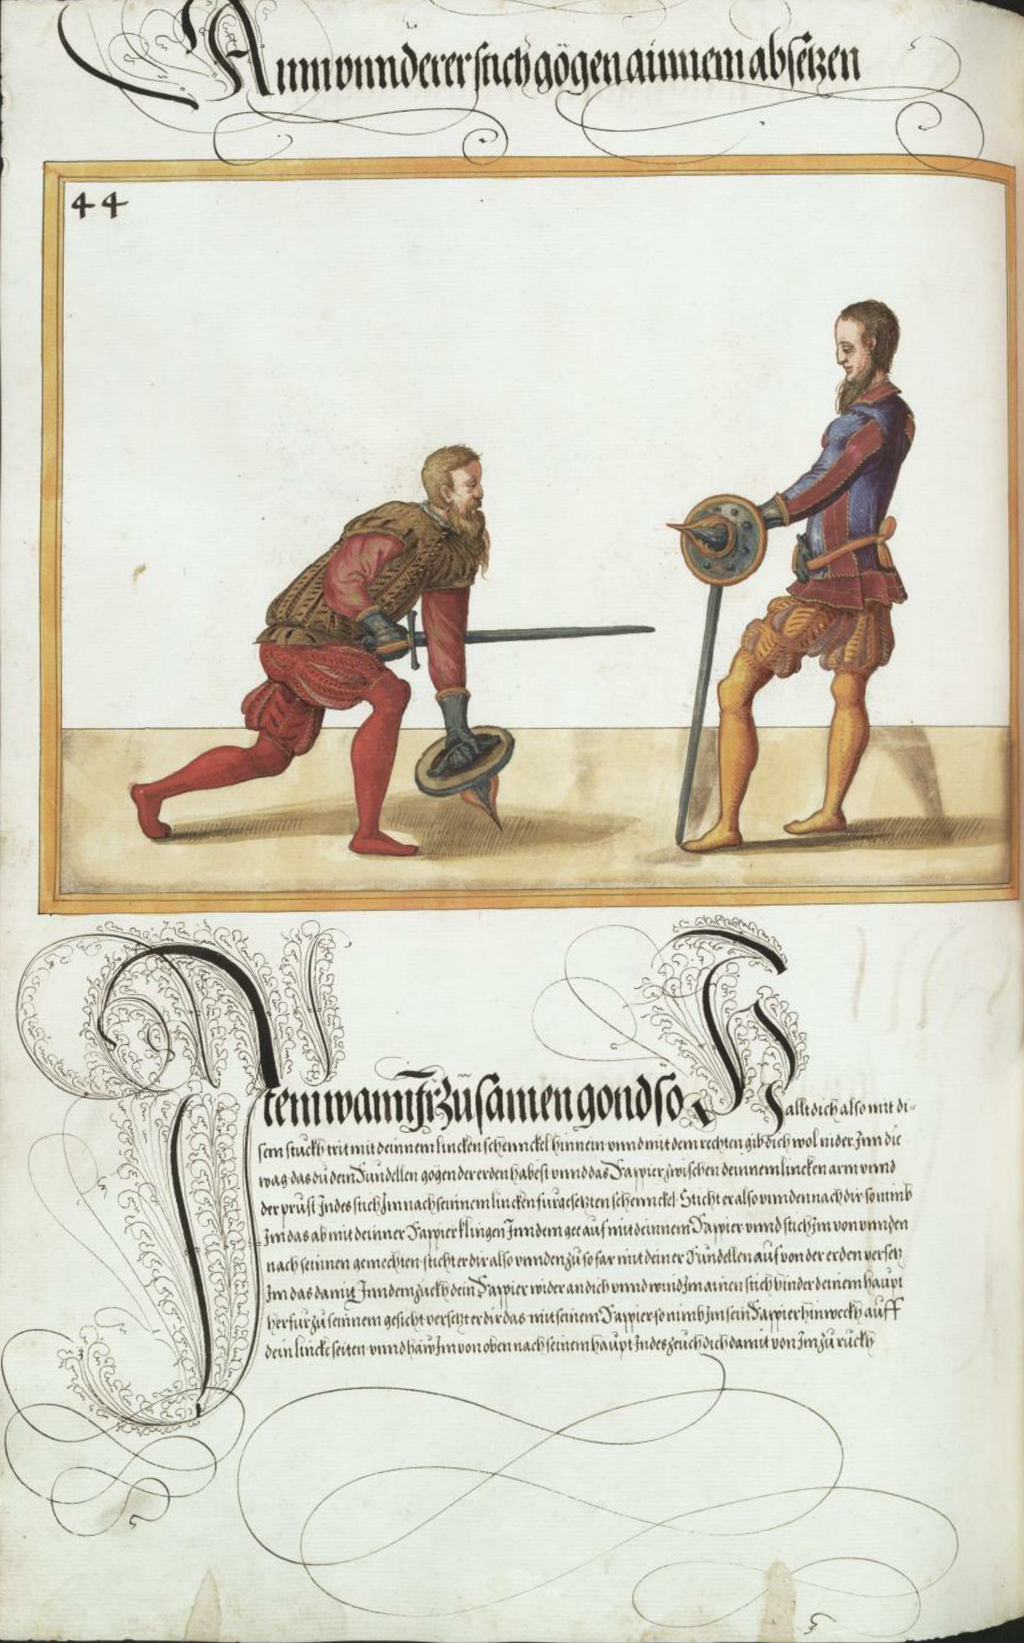 Ain vnnderer stich gögen ainnem absetzen
44
Item wann Ir zusamen gond so Hallt dich also mit di-
sem stuckh trit mit deinnem lincken schennckel hinnein vnnd mit dem rechten gib dich wol nider Inn die
wag das du dein Dundellen gögen der erden habest vnnd das Rappier zwischen deinnem lincken arm vnnd
der prust Indes stich Im nach seinnem lincken furgesetzten schennckel Sticht er also vnnden nach dir so nimb
Im das ab mit deinner Rappier klingen Inn dem gee auf mit deinnem Rappier vnnd stich Im von vnnden
nach seinnen gemechten sticht er dir also vnnden zu so far mit deiner Dundellen auf von der erden versetz
Im das damit Inn dem zuckh dein Rappier wider an dich vnnd wind Im ainen stich hinder deinem haupt
herfur zu seinnem gesicht versetzt er dir das mit seinem Rappier so nimb Im sein Rappier hinweckh auff
dein lincke seiten vnnd haw Im von oben nach seinem haupt Indes zeuch dich damit von Im zu ruckh